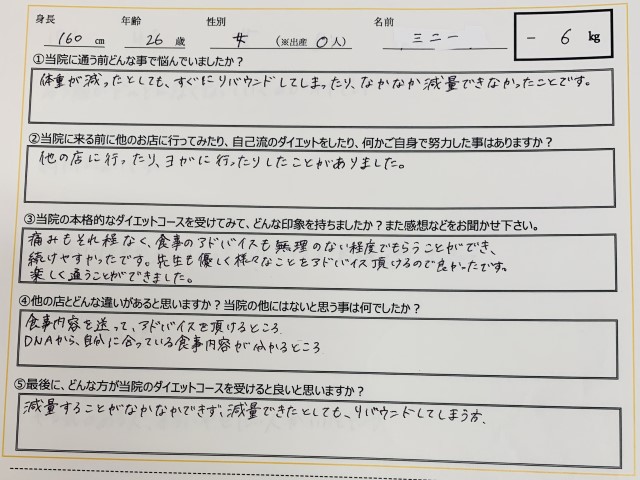 身長 年齢 性別 名前
160 cm 26 歳 女 (※出産 0 人) ミニー － 6 kg
①当院に通う前どんな事で悩んでいましたか？
体重が減ったとしても、すぐにリバウンドしてしまったり、なかなか減量できなかったことです。
②当院に来る前に他のお店に行ってみたり、自己流のダイエットをしたり、何かご自身で努力した事はありますか？
他の店に行ったり、ヨガに行ったりしたことがありました。
③当院の本格的なダイエットコースを受けてみて、どんな印象を持ちましたか？また感想などをお聞かせ下さい。
痛みもそれ程なく、食事のアドバイスも無理のない程度でもらうことができ、
続けやすかったです。先生も優しく様々なことをアドバイス頂けるので良かったです。
楽しく通うことができました。
④他の店とどんな違いがあると思いますか？当院の他にはないと思う事は何でしたか？
食事内容を送って、アドバイスを頂けるところ
DNAから、自分に合っている食事内容が分かるところ
⑤最後に、どんな方が当院のダイエットコースを受けると良いと思いますか？
減量することがなかなかできず、減量できたとしても、リバウンドしてしまう方、